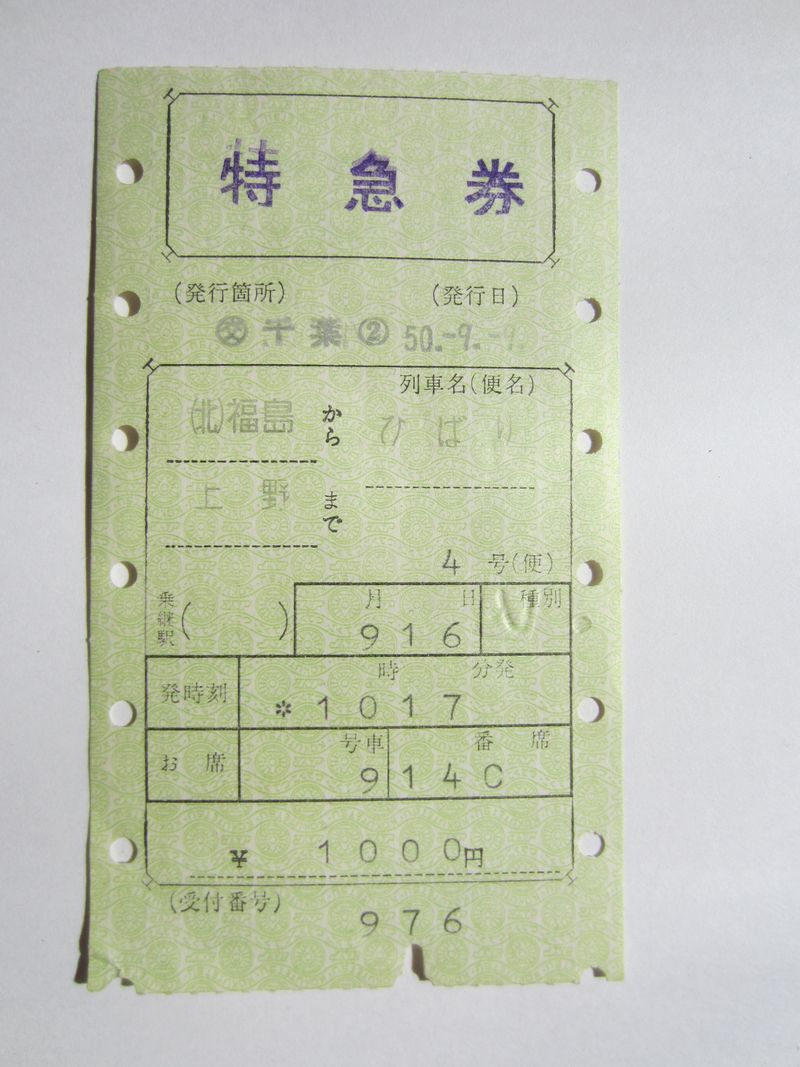 特急券
(発行箇所) (発行日)
㊋千葉② 50.-9.-9.
列車名(便名)
(北)福島 から ひばり
上野 まで
4 号(便)
乗継駅( ) 月 日 種別
9 16
発時刻 時 分発
*10 17
お席 号車 番 席
9 14C
¥ 1000円
(受付番号)
976